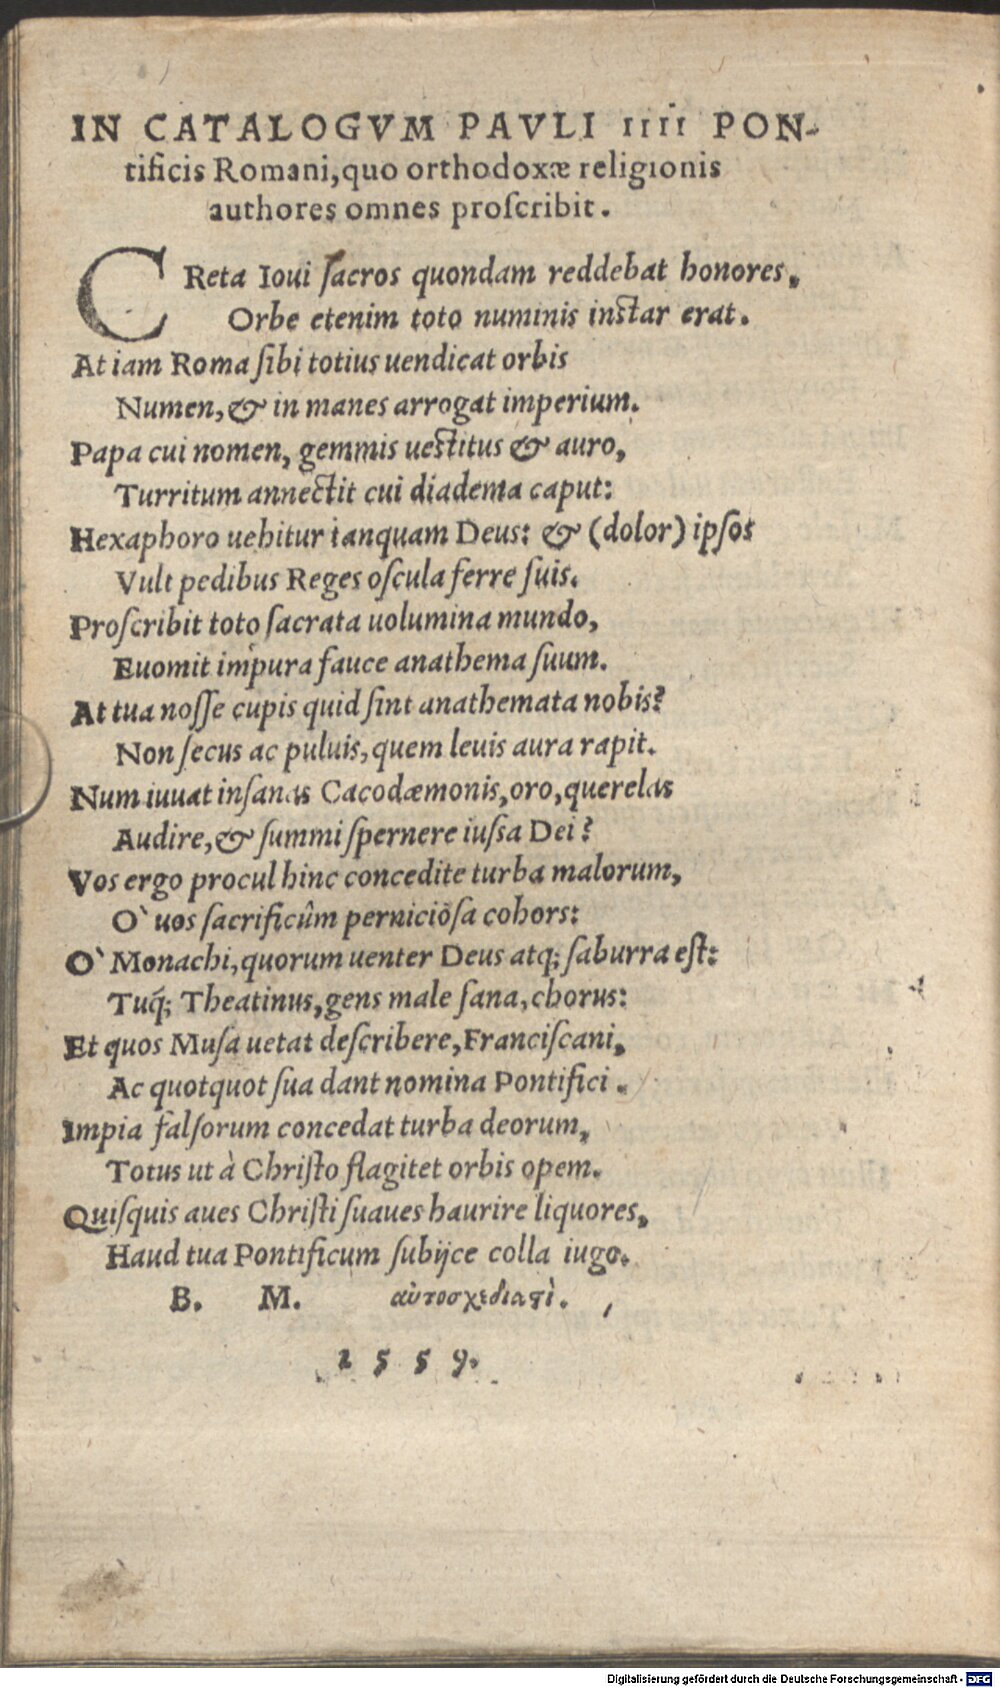 IN CATALOGVM PAVLI IIII PON-
tificis Romani, quo orthodoxæ religionis
authores omnes proſcribit.
CReta Ioui ſacros quondam reddebat honores,
Orbe etenim toto numinis inſtar erat.
At iam Roma ſibi totius uendicat orbis
Numen, & in manes arrogat imperium.
Papa cui nomen, gemmis ueſtitus & auro,
Turritum annectit cui diadema caput:
Hexaphoro uehitur tanquam Deus: & (dolor) ipſos
Vult pedibus Reges oſcula ferre ſuis.
Proſcribit toto ſacrata uolumina mundo,
Euomit impura fauce anathema ſuum.
At tua noſſe cupis quid ſint anathemata nobis?
Non ſecus ac puluis, quem leuis aura rapit.
Num iuuat inſanas Cacodæmonis, oro, querelas
Audire, & ſummi ſpernere iuſſa Dei?
Vos ergo procul hinc concedite turba malorum,
O` uos ſacrificûm pernicioſa cohors:
O` Monachi, quorum uenter Deus atq; ſaburra eſt:
Tuq́; Theatinus, gens male ſana, chorus:
Et quos Muſa uetat deſcribere, Franciſcani,
Ac quotquot ſua dant nomina Pontifici.
Impia falſorum concedat turba deorum,
Totus ut à Chriſto flagitet orbis opem.
Quiſquis aues Chriſti ſuaues haurire liquores,
Haud tua Pontificum ſubijce colla iugo.
B. M. αὐτοσχεδιαστὶ.
1559.
Digitalisierung gefördert durch die Deutsche Forschungsgemeinschaft - DFG